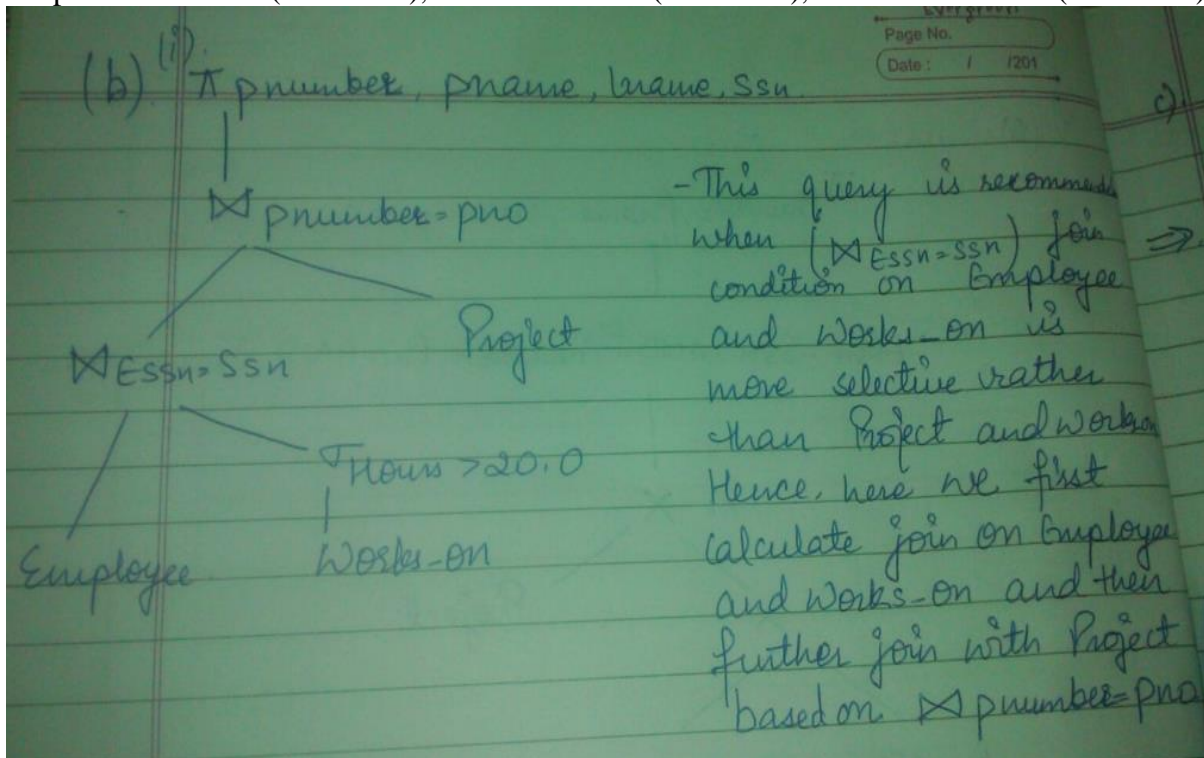 Page No.
Date : / /201
(b) (i) π pnumber, pname, lname, Ssn
c)
⋈ pnumber = pno
⋈ Essn = Ssn
Project
σ Hours > 20.0
Employee
Works-on
- This query is recommende
when (⋈ Essn = Ssn) join
condition on Employee
and works-on is
more selective rather
than Project and workson
Hence, here we first
calculate join on Employee
and works-on and then
further join with Project
based on ⋈ pnumber = pno
⇒